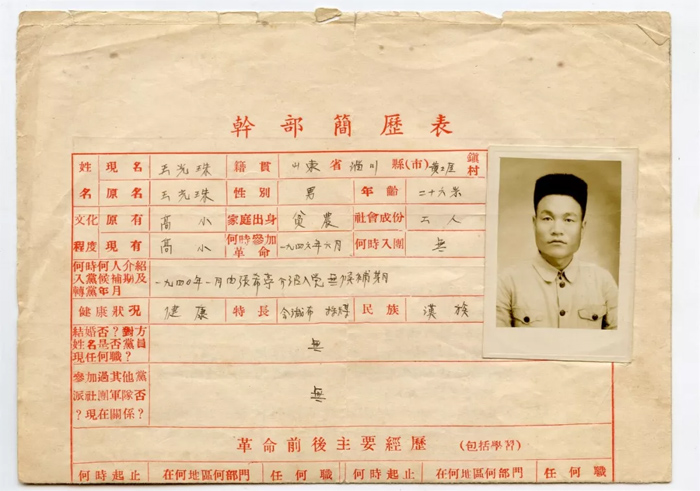 幹部簡歷表
姓 現名 玉光珠 籍貫 山東省淄川縣(市) 鎮村
名 原名 玉光珠 性別 男 年齡 二十六岁
文化 原有 高小 家庭出身 貧農 社會成份 工人
程度 現有 高小 何時參加革命 一九四六年六月 何時入團 無
何時何人介紹
入黨候補期及
轉黨年月
健康狀況 健康 特長 民族 漢族
結婚否?對方
姓名是否黨員
現任何職? 無
參加過其他黨
派社團軍隊否
?現在關係? 無
革命前後主要經歷 (包括學習)
何時起止 在何地區何部門 任何職 何時起止 在何地區何部門 任何職